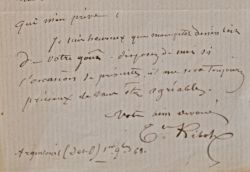 qui m'en prive !
Je suis heureux que mon petit dessin soit
de votre goût. disposez de moi si
l'occasion se présente il me sera toujours
précieux de vous être agréable.
Votre ami dévoué
T. Ribot
Argenteuil (S-et-O)